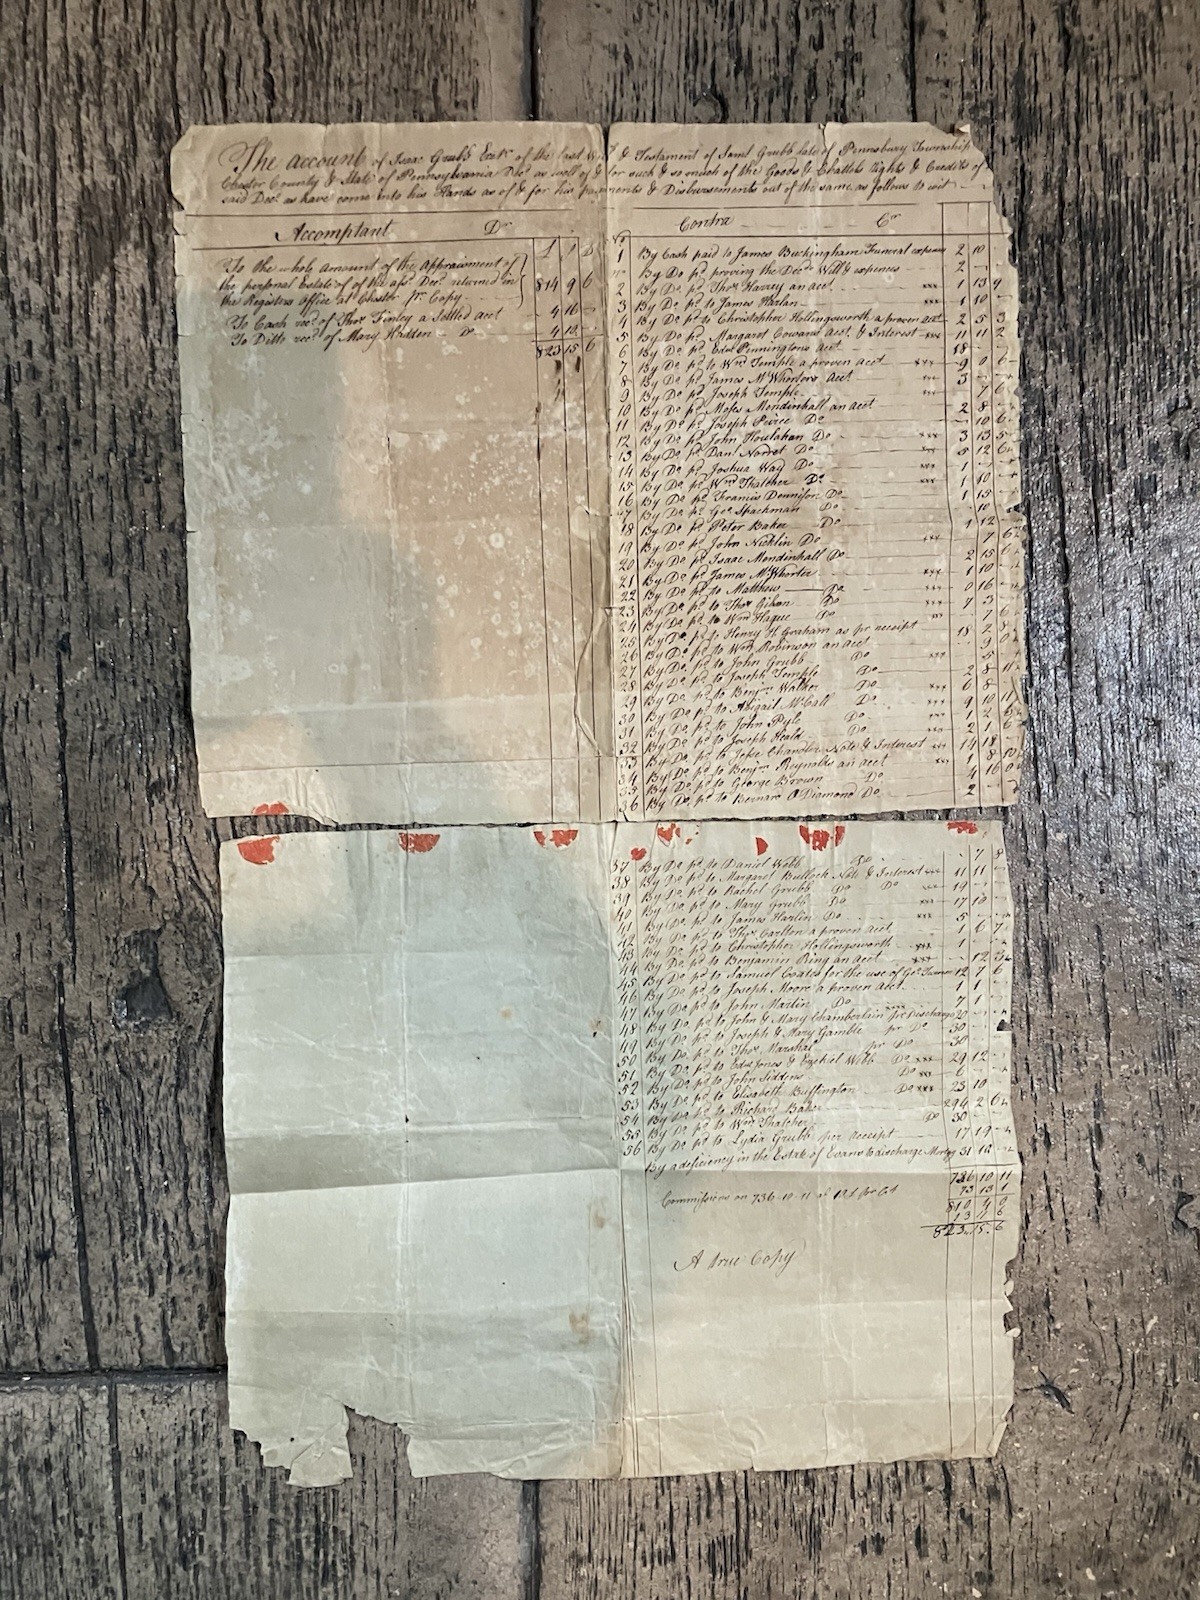 The account of Isaac Grubb Exetr of the last Will & Testament of Saml Grubb late of Pennsbury Township
Chester County & State of Pennsylvania Decd as well of & for such & so much of the Goods & Chattels Rights & Credits of
said Decd as have come into his Hands as of & for his payments & Disbursements out of the same as follows to wit
Accomptant Dr
To the whole amount of the Appraisment of
the personal Estate of of the afsd Decd returned in
the Registers office at Chester pr Copy 814 9 6
To Cash recd of Thos Finley a Settled acct 4 16
To Ditto recd of Mary Hadden Do 4 10
823 15 6
Contra Cr
No
1 By Cash paid to James Buckingham Funeral expense 2 10
By Do pd proving the Decds Will & expences 2
2 By Do pd Thos Harvey an acct xxx 1 13 9
3 By Do pd to James Harlan xxx 1 10
4 By Do pd to Christopher Hollingsworth a proven acct 2 5 3
5 By Do pd Margaret Cowans acct & Interest xxx 11 11 2
6 By Do pd Edwd Penningtons acct 18
7 By Do pd to Wm Temple a proven acct xxx 9 0 6
8 By Do pd James McWhorters acct xxx 3
9 By Do pd Joseph Temple 7 6
10 By Do pd Moses Mendinhall an acct 2 8
11 By Do pd Joseph Peirce Do 10 6
12 By Do pd John Houlahan Do xxx 3 13 5
13 By Do pd Danl Norret Do xxx 5 12 6
14 By Do pd Joshua Way Do xxx 1
15 By Do pd Wm Thatcher Do xxx 1 10
16 By Do pd Francis Dennison Do 1 15
17 By Do pd Geo Spachman Do 10
18 By Do pd Peter Baker Do 1 12
19 By Do pd John Nicklin Do xxx 7 6
20 By Do pd Isaac Mendinhall Do 2 15 6
21 By Do pd James McWhorter xxx 1 10
22 By Do pd to Matthew Do xxx 0 16
23 By Do pd to Thos Gibon Do xxx 7 3
24 By Do pd to Wm Hague Do xxx 7 6
25 By Do pd to Henry H Graham as pr receipt 18 2 8
26 By Do pd to Wm Robinson an acct 9 0
27 By Do pd to John Grubb Do xxx 5
28 By Do pd to Joseph Temple Do 2 8 11
29 By Do pd to Benjm Walker Do xxx 6 8
30 By Do pd to Abigail McCall Do xxx 9 10 11
31 By Do pd to John Pyle Do xxx 1 2
32 By Do pd to Joseph Heald Do xxx 2 1 6
33 By Do pd to Jesse Chandler Note & Interest xxx 14 18
34 By Do pd to Benjm Reynolds an acct xxx 1 8 10
35 By Do pd to George Brown Do 4 16 0
36 By Do pd to Bernard O Diamond Do 2
37 By Do pd to Daniel Webb Do 7 8
38 By Do pd to Margaret Bulloch Note & Interest xxx 11 11
39 By Do pd to Rachel Grubb Do Do 19
40 By Do pd to Mary Grubb Do xxx 17 10
41 By Do pd to James Harlin Do xxx 5
42 By Do pd to Thos Carlton a proven acct 1 6 7
43 By Do pd to Christopher Hollingsworth xxx 1
44 By Do pd to Benjamin Ring an acct xxx 12
45 By Do pd to Samuel Coates for the use of Geo 12 7 6
46 By Do pd to Joseph Moore a proven acct 1 1
47 By Do pd to John Martin Do 7 1
48 By Do pd to John & Mary Chamberlain pr Discharge 20
49 By Do pd to Joseph & Mary Gamble pr Do 30
By Do pd to Thos Marshal pr Do 30
50 By Do pd to Edwd Jones & Ezekiel Webb Do xxx 29 12
51 By Do pd to John Siddens Do xxx 6
52 By Do pd to Elisabeth Buffington Do xxx 23 10
53 By Do pd to Richard Baker 294 2 6
54 By Do pd to Wm Thatcher Do 30
55 By Do pd to Lydia Grubb per receipt 17 19
56 By a deficiency in the Estate of Evans to discharge 31 12
736 10 11
Commissions on 736-10-11 at 10£ pr Ct 73 13 1
810 4 0
13 11 6
823 15 6
A true Copy